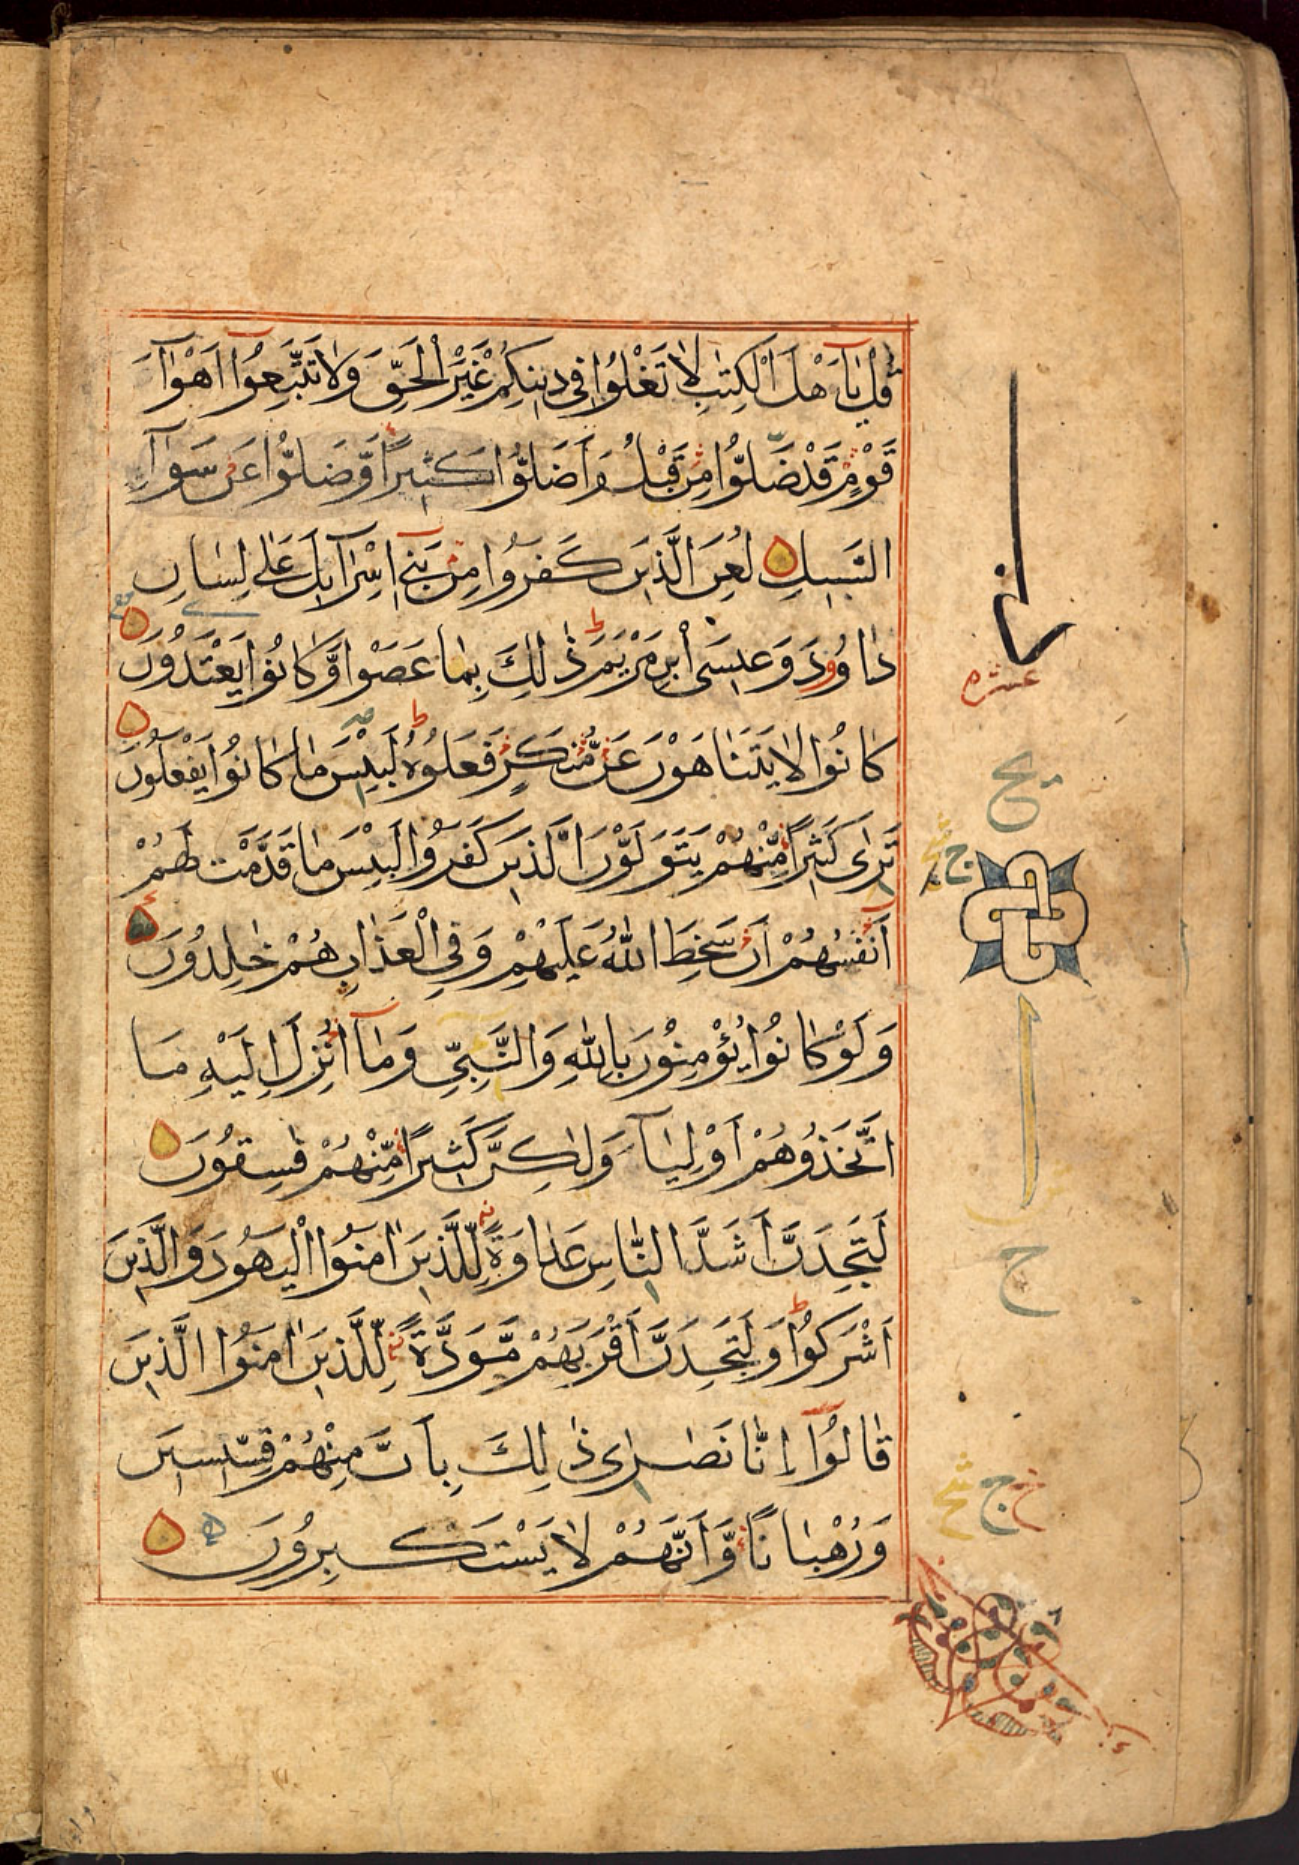 قُلْ يٰٓاَهْلَ الْكِتٰبِ لَا تَغْلُوْا فِي دِيْنِكُمْ غَيْرَ الْحَقِّ وَلَا تَتَّبِعُوْٓا اَهْوَآءَ
قَوْمٍ قَدْ ضَلُّوْا مِنْ قَبْلُ وَاَضَلُّوْا كَثِيْرًا وَّضَلُّوْا عَنْ سَوَآءِ
السَّبِيْلِ لُعِنَ الَّذِيْنَ كَفَرُوْا مِنْ بَنِيْٓ اِسْرَآئِلَ عَلٰى لِسَانِ
دَاوٗدَ وَعِيْسَى ابْنِ مَرْيَمَ ذٰلِكَ بِمَا عَصَوْا وَّكَانُوْا يَعْتَدُوْنَ
كَانُوْا لَا يَتَنَاهَوْنَ عَنْ مُّنْكَرٍ فَعَلُوْهُ لَبِئْسَ مَا كَانُوْا يَفْعَلُوْنَ
تَرٰى كَثِيْرًا مِّنْهُمْ يَتَوَلَّوْنَ الَّذِيْنَ كَفَرُوْا لَبِئْسَ مَا قَدَّمَتْ لَهُمْ
اَنْفُسُهُمْ اَنْ سَخِطَ اللّٰهُ عَلَيْهِمْ وَفِي الْعَذَابِ هُمْ خٰلِدُوْنَ
وَلَوْ كَانُوْا يُؤْمِنُوْنَ بِاللّٰهِ وَالنَّبِيِّ وَمَآ اُنْزِلَ اِلَيْهِ مَا
اتَّخَذُوْهُمْ اَوْلِيَآءَ وَلٰكِنَّ كَثِيْرًا مِّنْهُمْ فٰسِقُوْنَ
لَتَجِدَنَّ اَشَدَّ النَّاسِ عَدَاوَةً لِّلَّذِيْنَ اٰمَنُوا الْيَهُوْدَ وَالَّذِيْنَ
اَشْرَكُوْا وَلَتَجِدَنَّ اَقْرَبَهُمْ مَّوَدَّةً لِّلَّذِيْنَ اٰمَنُوا الَّذِيْنَ
قَالُوْٓا اِنَّا نَصٰرٰى ذٰلِكَ بِاَنَّ مِنْهُمْ قِسِّيْسِيْنَ
وَرُهْبَانًا وَّاَنَّهُمْ لَا يَسْتَكْبِرُوْنَ
عشره